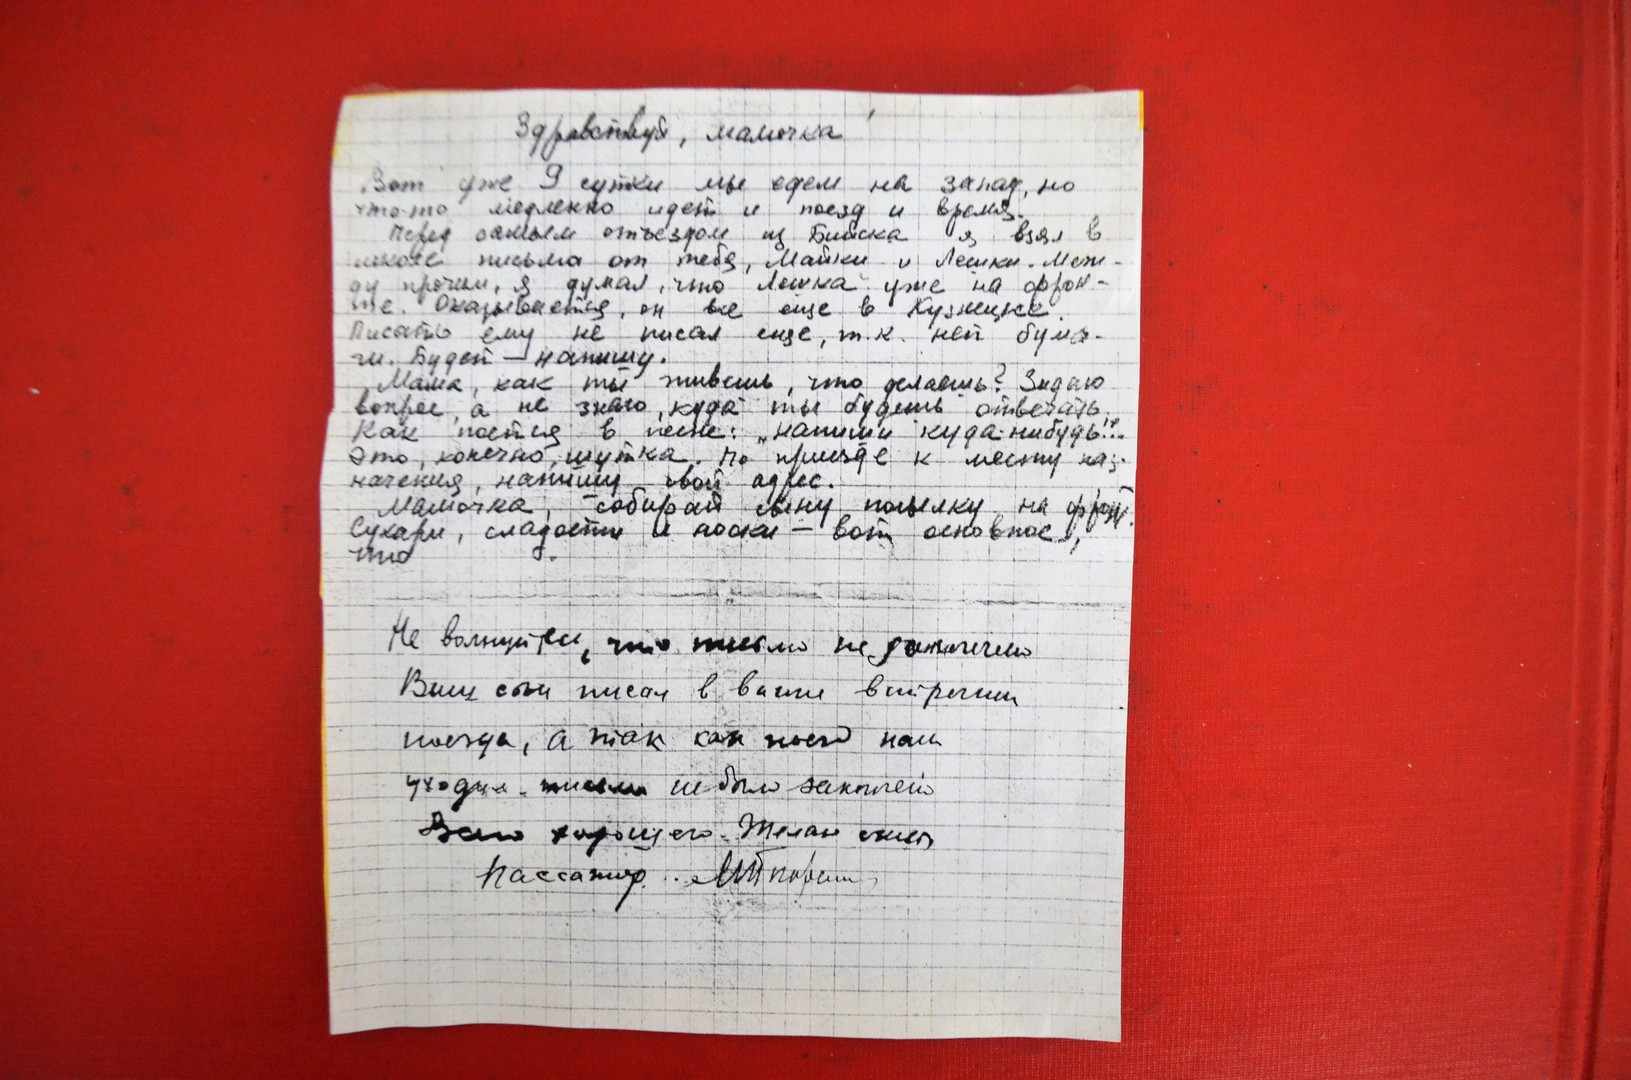 Здравствуй, мамочка!
Вот уже 9 сутки мы едем на запад, но
что-то медленно идет и поезд и время.
Перед самым отъездом из Бийска я взял в
школе письма от тебя, Майки и Лешки. Меж-
ду прочим, я думал, что Лешка уже на фрон-
те. Оказывается, он все еще в Кузнецке.
Писать ему не писал еще, т.к. нет бума-
ги. Будет — напишу.
Мама, как ты живешь, что делаешь? Задаю
вопрос, а не знаю, куда ты будешь отвечать.
Как поется в песне: „напиши куда-нибудь"...
Это, конечно, шутка. По приезде к месту наз-
начения, напишу свой адрес.
Мамочка, собирай сыну посылку на фронт.
Сухари, сладости и носки — вот основное,
что
Не волнуйтесь, что письмо не закончено
Ваш сын писал в вагоне встречном
поезда, а так как поезд наш
уходил письмо не было закончено
Всего хорошего. Желаю
Пассажир